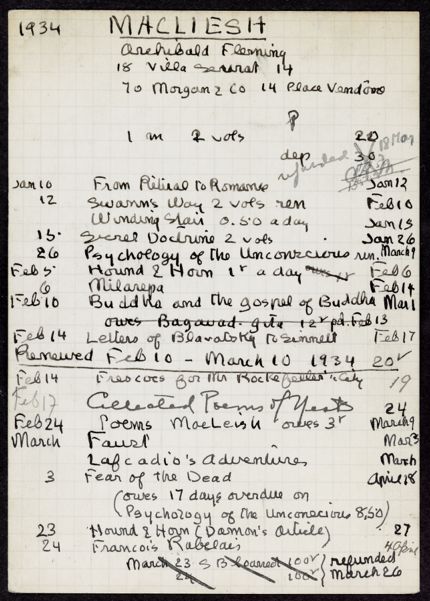 1934 MACLIESH
Archibald Fleming
18 Villa Seurat 14
℅ Morgan & Co 14 Place Vendôme
P
1 m 2 vols 20
dep 30
refunded 18 Mar
Jan 10 From Ritual to Romance Jan 12
12 Swann's Way 2 vols ren Feb 10
Winding Stair 0.50 a day Jan 15
15 Secret Doctrine 2 vols Jan 26
26 Psychology of the Unconscious ren. March 9
Feb 5 Hound & Horn 1fr a day Feb 6
6 Milarepa Feb 14
Feb 10 Buddha and the gospel of Buddha Mar 1
owes Bagavad. gita 12fr pd. Feb 13
Feb 14 Letters of Blavatsky to Sinnett Feb 17
Renewed Feb 10 - March 10 1934 20fr
Feb 14 Frescoes for Mr Rockefeller's City 19
Feb 17 Collected Poems of Yeats 24
Feb 24 Poems MacLeish owes 3fr March 9
March Faust Mar 3
Lafcadio's Adventures March
3 Fear of the Dead April 18
(owes 17 days overdue on
Psychology of the Unconscious 8,50)
23 Hound & Horn (Damon's Article) 27
24 Francois Rabelais
March 23 S B loaned 100fr } refunded
24 100fr } March 26